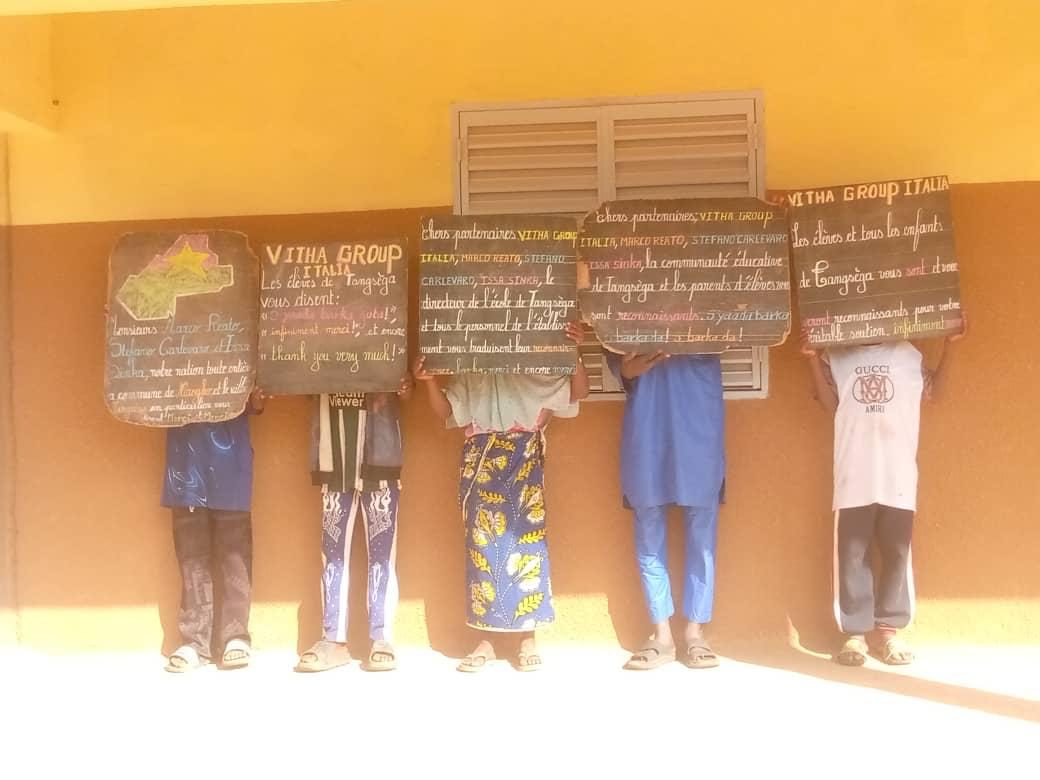 Messieurs Marco Reato,
Stefano Carlevaro et Issa
Sinka, notre nation toute entière
la commune de et le village
en particulier vous
disent Merci et Merci
VITHA GROUP
ITALIA
Les élèves de Tangsèga
vous disent:
"
infiniment merci!", et encore
"thank you very much!"
Viewer
Chers partenaires VITHA GROUP
ITALIA, MARCO REATO, STEFANO
CARLEVARO, ISSA SINKA, le
directeur de l'école de Tangsèga
et tous le personnel de l'établis-
ment vous traduisent leur reconnais-
barka, merci et encore merci
Chers partenaires, VITHA GROUP
ITALIA, MARCO REATO, STEFANO CARLEVARO
ISSA Sinka, la communauté éducative
de Tangsèga et les parents d'élèves vous
sont reconnaissants. yaada barka
barka da! barka da!
VITHA GROUP ITALIA
Les élèves et tous les enfants
de Tangsèga vous sont et vous
seront reconnaissants pour votre
véritable soutien, infiniment
GUCCI
AMIRI